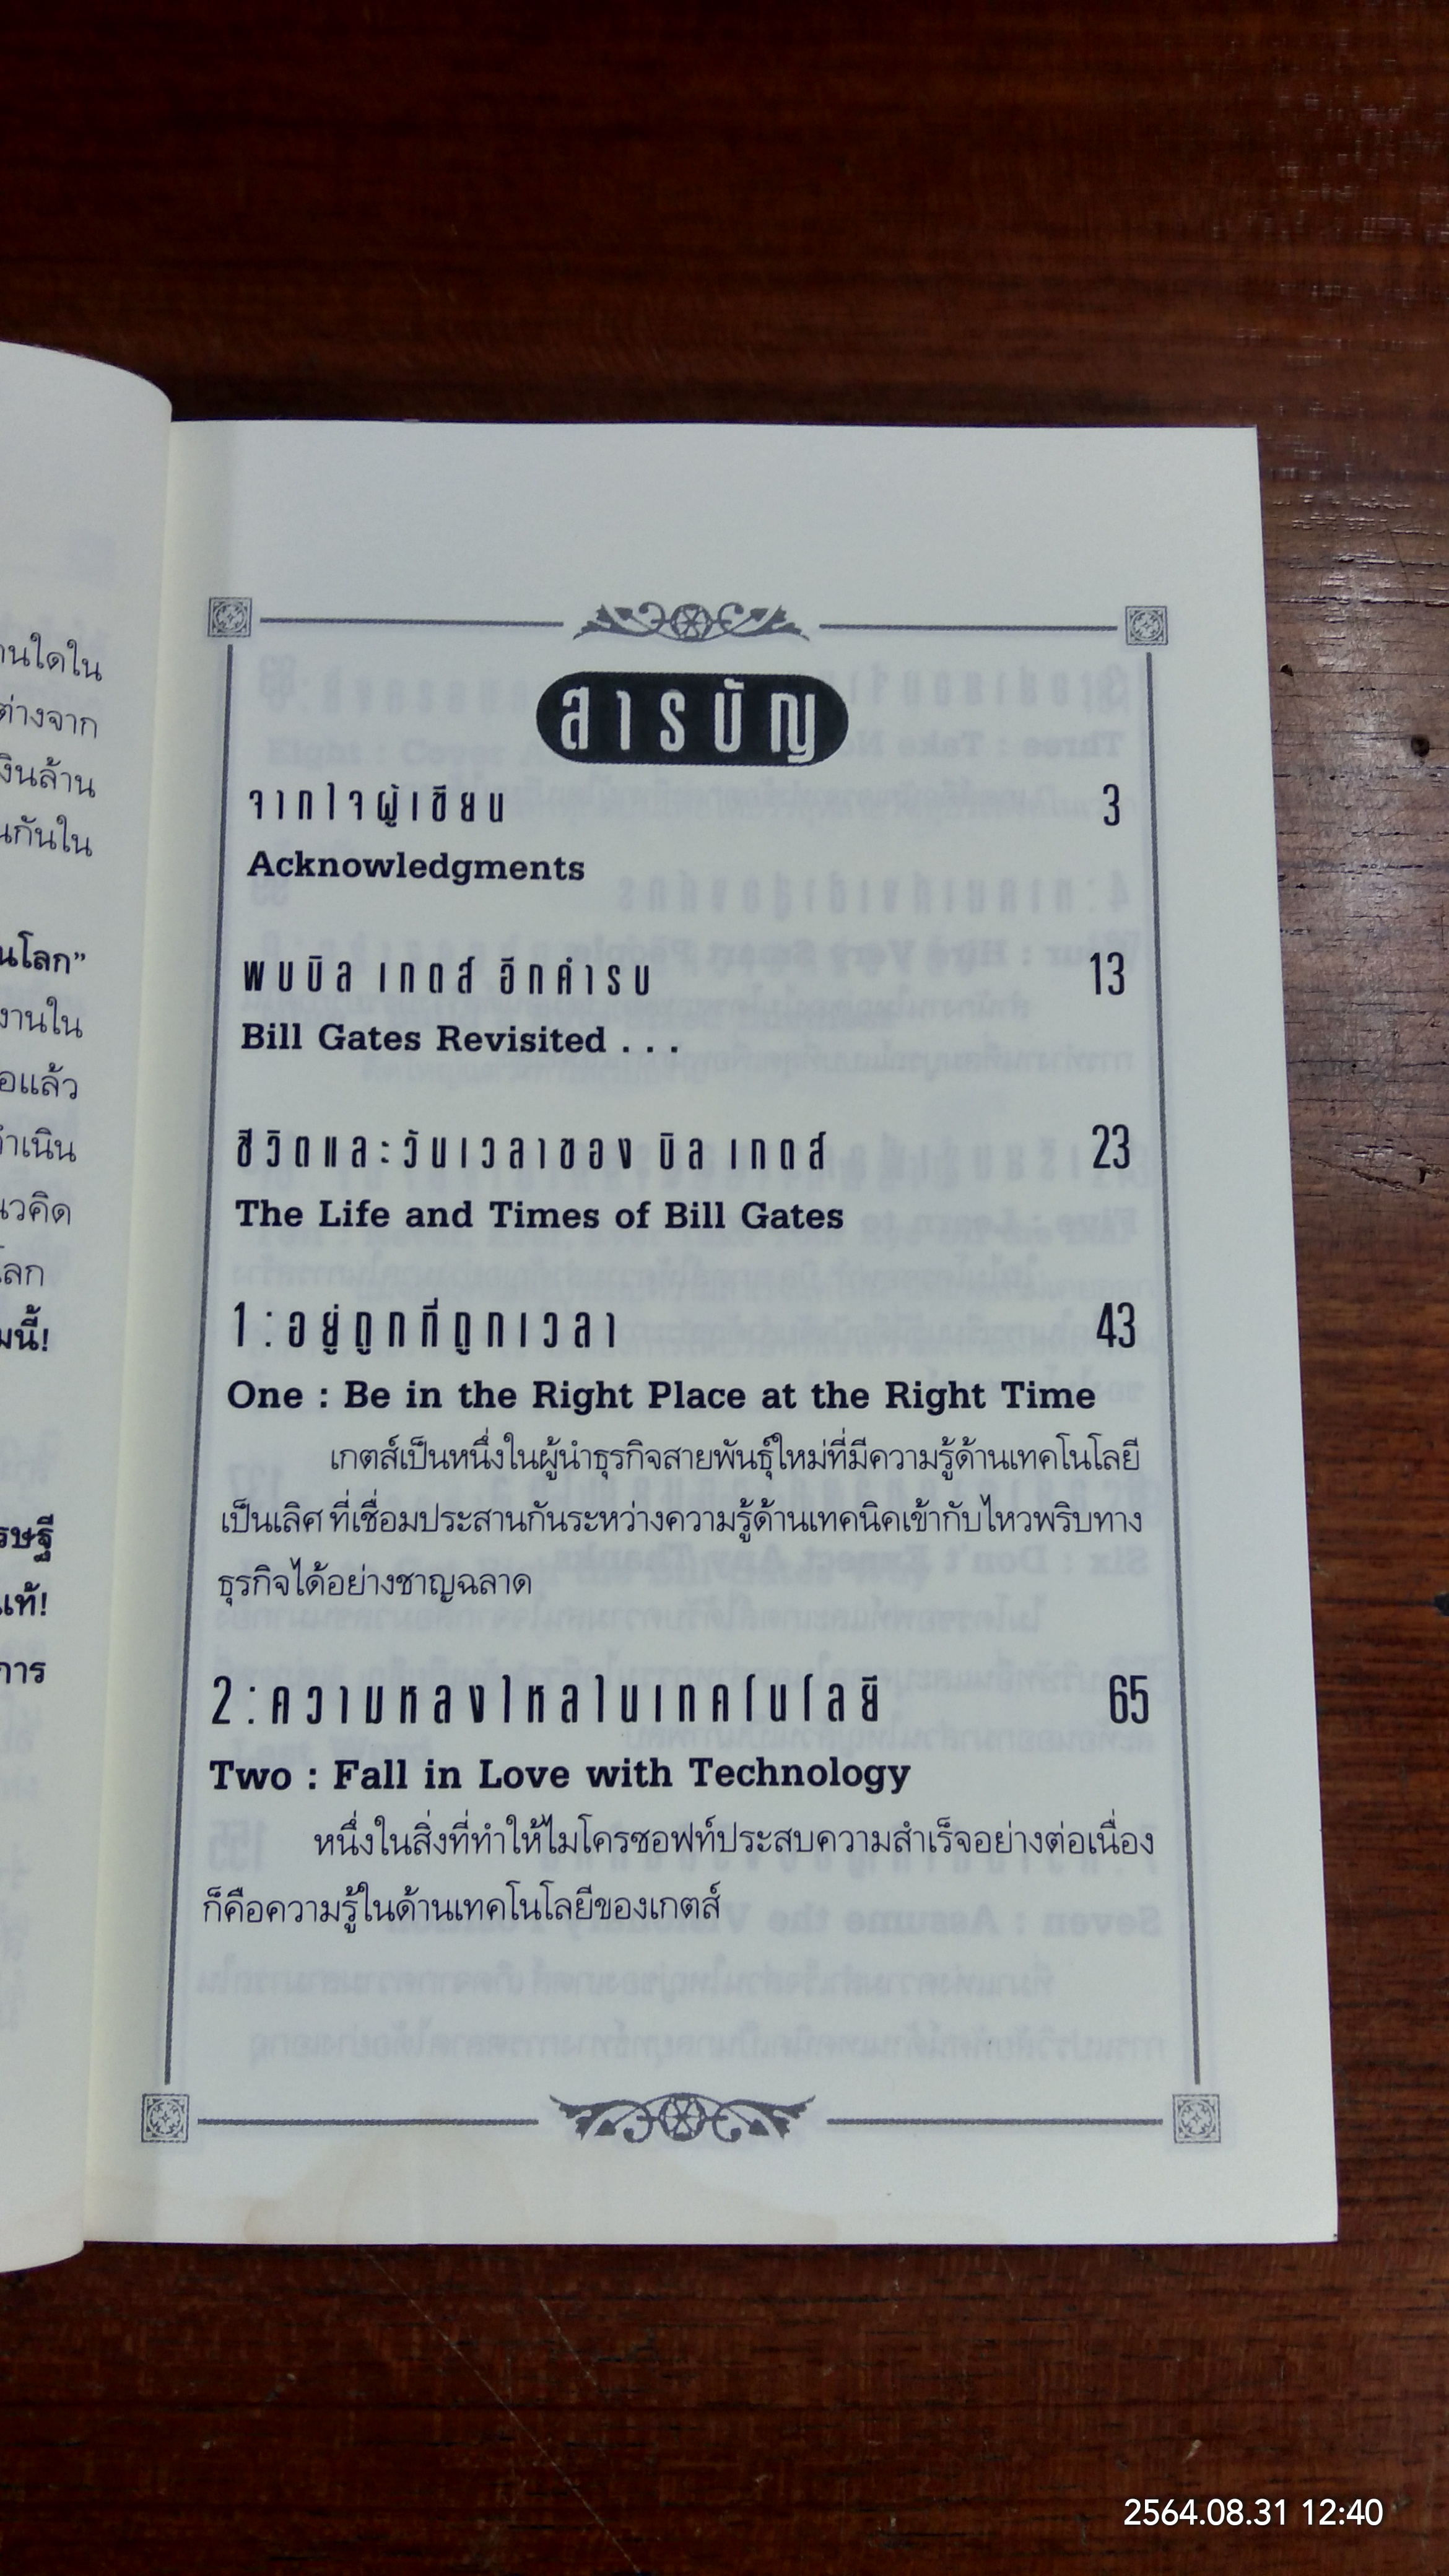 สารบัญ
จากใจผู้เขียน 3
Acknowledgments
พบบิล เกตส์ อีกคำรบ 13
Bill Gates Revisited . . .
ชีวิตและวันเวลาของ บิล เกตส์ 23
The Life and Times of Bill Gates
1 : อยู่ถูกที่ถูกเวลา 43
One : Be in the Right Place at the Right Time
เกตส์เป็นหนึ่งในผู้นำธุรกิจสายพันธุ์ใหม่ที่มีความรู้ด้านเทคโนโลยี
เป็นเลิศ ที่เชื่อมประสานกันระหว่างความรู้ด้านเทคนิคเข้ากับไหวพริบทาง
ธุรกิจได้อย่างชาญฉลาด
2 : ความหลงใหลในเทคโนโลยี 65
Two : Fall in Love with Technology
หนึ่งในสิ่งที่ทำให้ไมโครซอฟท์ประสบความสำเร็จอย่างต่อเนื่อง
ก็คือความรู้ในด้านเทคโนโลยีของเกตส์
2564.08.31 12:40